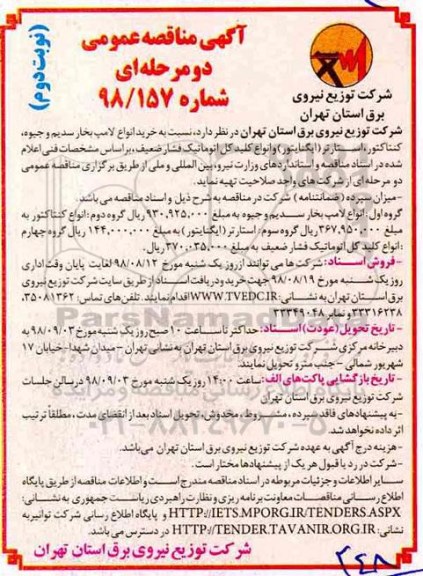 آگهی مناقصه عمومی
دو مرحله‌ای
شماره ۹۸/۱۵۷
(نوبت دوم)
شرکت توزیع نیروی
برق استان تهران
شرکت توزیع نیروی برق استان تهران در نظر دارد، نسبت به خرید انواع لامپ بخار سدیم و جیوه،
کنتاکتور، استارتر (ایگنایتور) و انواع کلید کل اتوماتیک فشار ضعیف، بر اساس مشخصات فنی اعلام
شده در اسناد مناقصه و استانداردهای وزارت نیرو، بین المللی و ملی از طریق برگزاری مناقصه عمومی
دو مرحله ای از شرکت های واجد صلاحیت تهیه نماید.
-میزان سپرده (ضمانتنامه) شرکت در مناقصه به شرح ذیل و اسناد مناقصه می باشد.
گروه اول: انواع لامپ بخار سدیم و جیوه به مبلغ ۹۳۰,۹۲۵,۰۰۰ ریال گروه دوم: انواع کنتاکتور به
مبلغ ۳۶۷,۹۵۰,۰۰۰ ریال گروه سوم: استارتر (ایگنایتور) به مبلغ ۱۴۴,۰۰۰,۰۰۰ ریال گروه چهارم
: انواع کلید کل اتوماتیک فشار ضعیف به مبلغ ۳۷۰,۰۳۵,۰۰۰ ریال.
-فروش اسناد: شرکت ها می توانند از روز یک شنبه مورخ ۹۸/۰۸/۱۲ لغایت پایان وقت اداری
روز یک شنبه مورخ ۹۸/۰۸/۱۹ جهت خرید و دریافت اسناد از طریق سایت شرکت توزیع نیروی
برق استان تهران به نشانی: WWW.TVEDC.IR اقدام نمایند. تلفن های تماس: ۳۵۰۸۱۳۶۲،
۳۳۳۱۶۲۳۸ و نمابر ۳۳۳۴۹۰۴۸
-تاریخ تحویل (عودت) اسناد: حداکثر تا ساعت ۱۰ صبح روز یک شنبه مورخ ۹۸/۰۹/۰۳ به
دبیرخانه مرکزی شرکت توزیع نیروی برق استان تهران به نشانی تهران -میدان شهدا-خیابان ۱۷
شهریور شمالی - جنب مترو تحویل نمایند.
-تاریخ بازگشایی پاکت های الف: ساعت ۱۴:۰۰ روز یک شنبه مورخ ۹۸/۰۹/۰۳ در سالن جلسات
شرکت توزیع نیروی برق استان تهران
-به پیشنهادهای فاقد سپرده، مشروط، مخدوش، تحویل اسناد بعد از انقضای مدت، مطلقاً ترتیب
اثر داده نخواهد شد.
-هزینه درج آگهی به عهده شرکت توزیع نیروی برق استان تهران می باشد.
-شرکت در رد یا قبول هر یک از پیشنهادها مختار است.
سایر اطلاعات و جزئیات مربوطه در اسناد مناقصه مندرج است و اطلاعات مناقصه از طریق پایگاه
اطلاع رسانی مناقصات معاونت برنامه ریزی و نظارت راهبردی ریاست جمهوری به نشانی:
HTTP://IETS.MPORG.IR/TENDERS.ASPX و پایگاه اطلاع رسانی شرکت توانیر به
نشانی: HTTP://TENDER.TAVANIR.ORG.IR در دسترس می باشد.
شرکت توزیع نیروی برق استان تهران
۲۴۸
ParsNamadData
۰۲۱-۸۸۳۴۹۶۷۰-۵